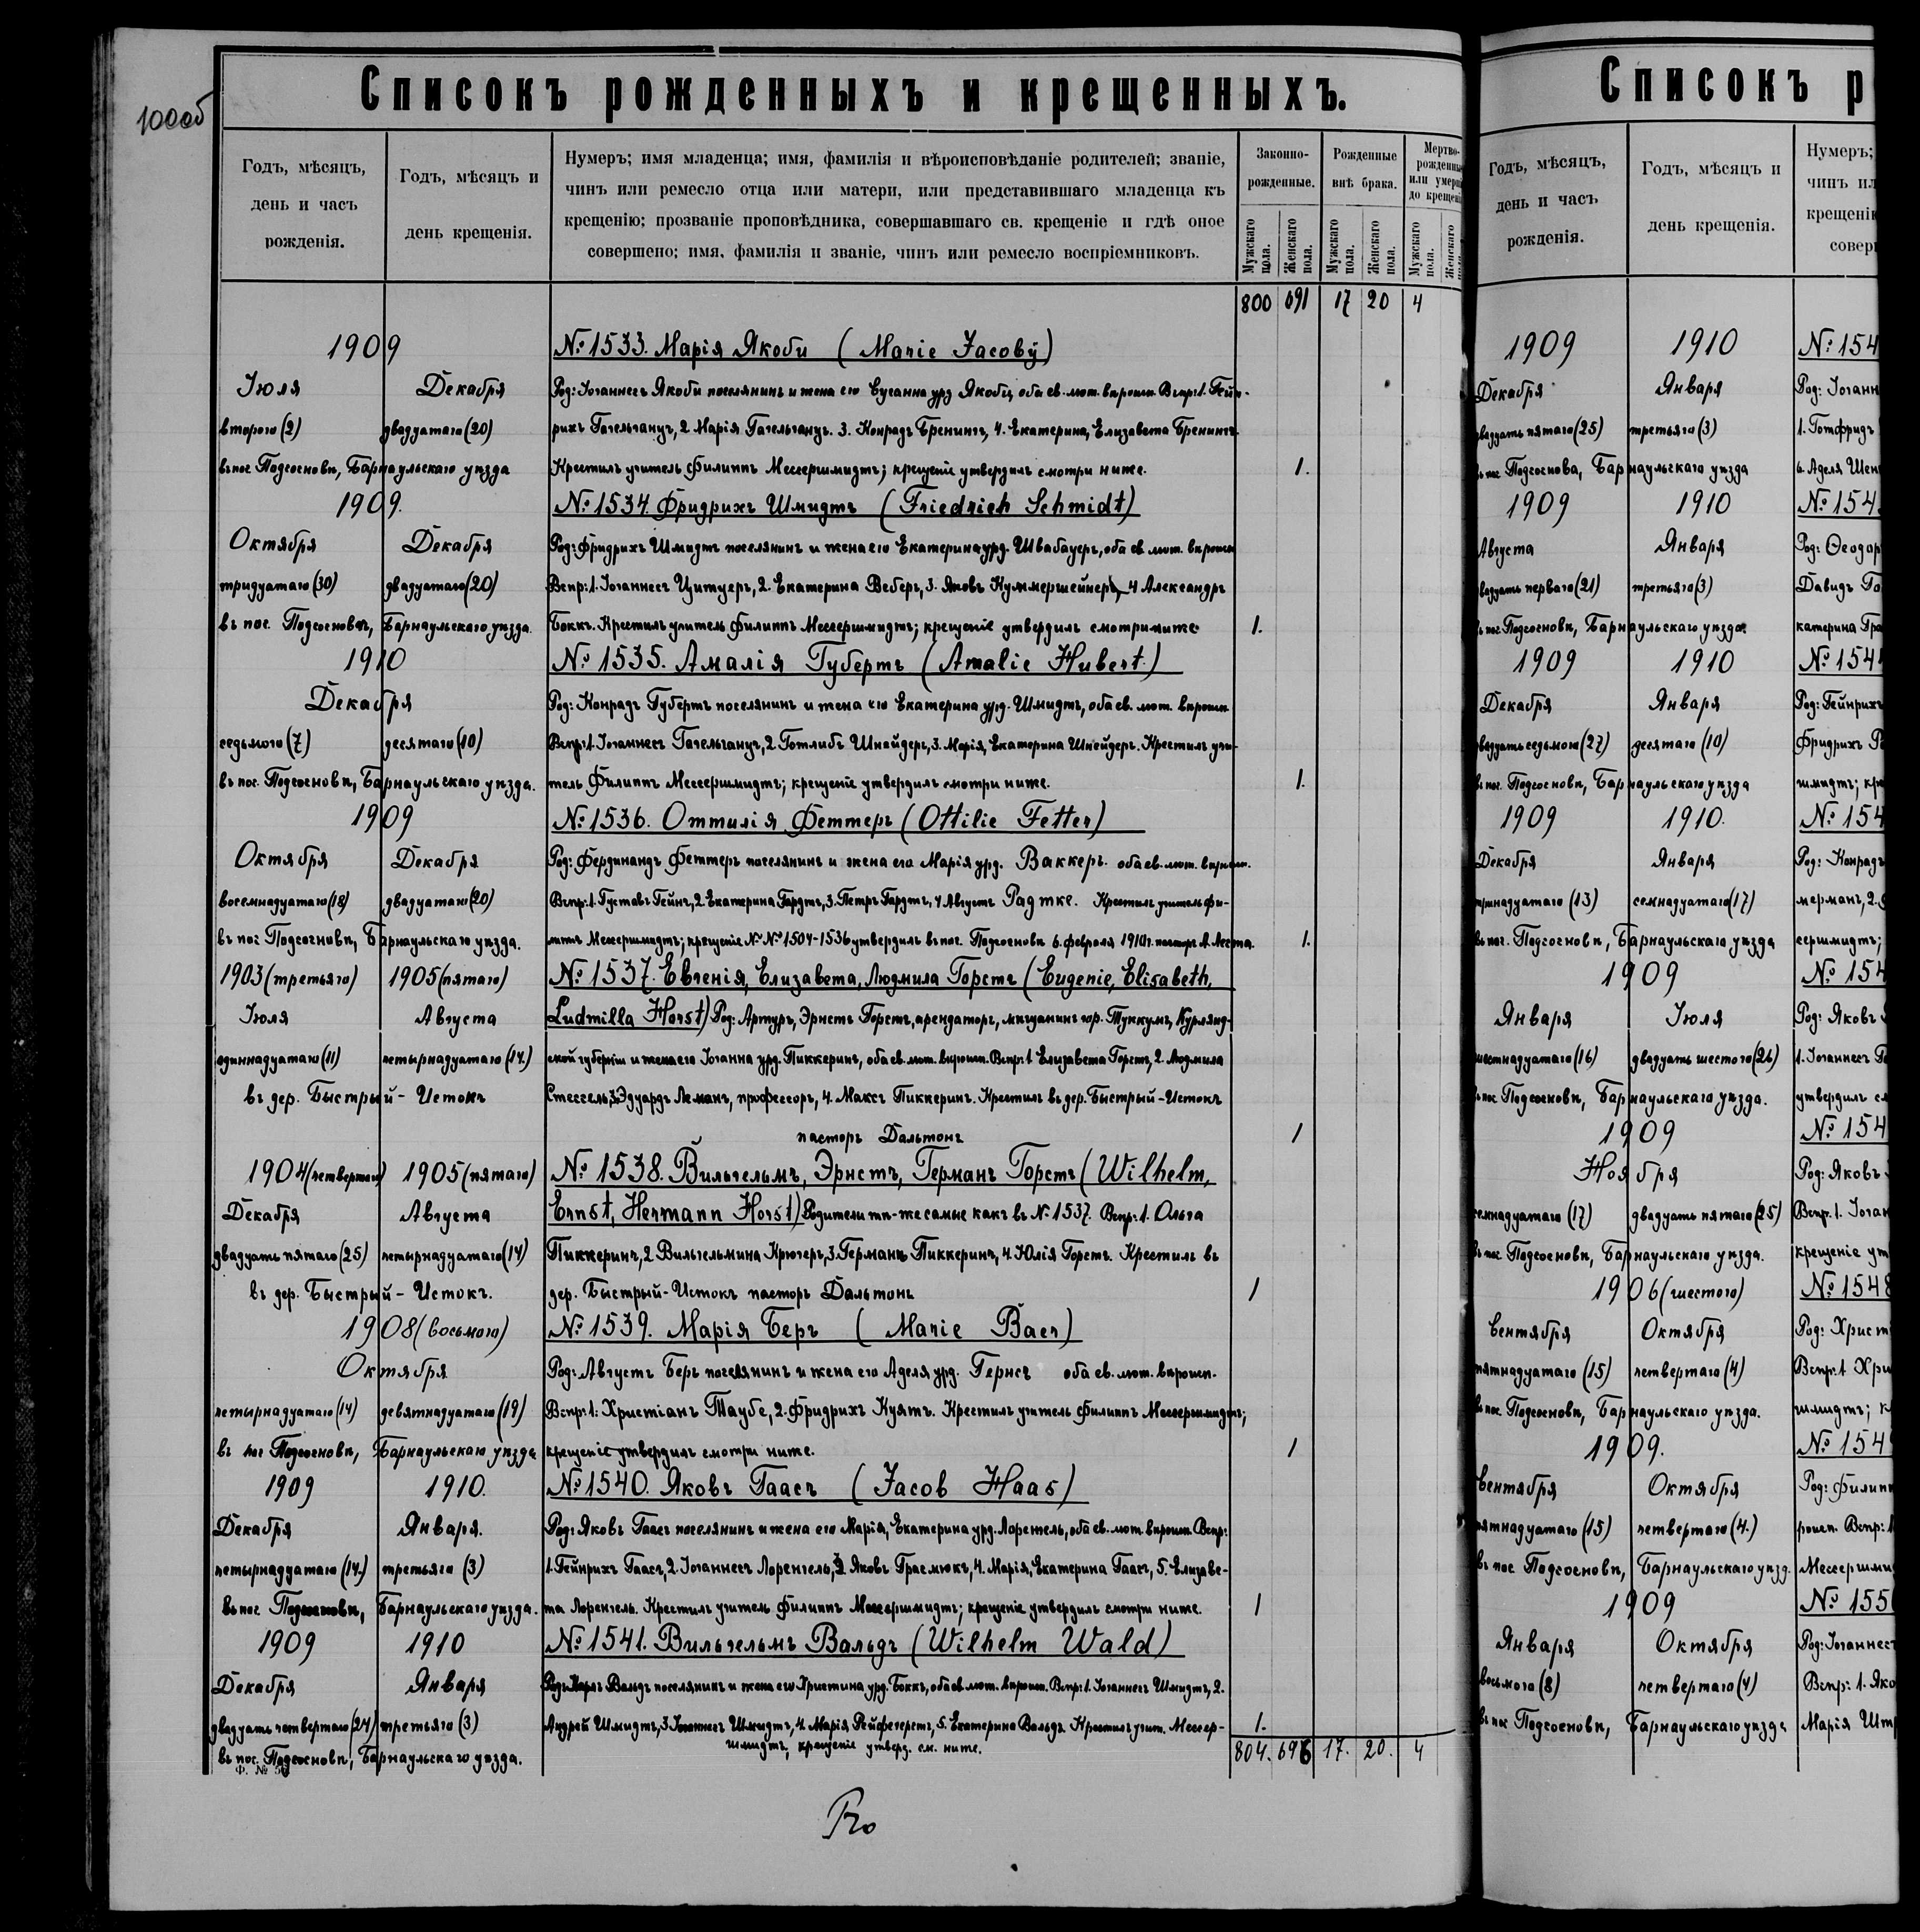 100об
Списокъ рожденныхъ и крещенныхъ.
Годъ, мѣсяцъ, день и часъ рожденія.
Годъ, мѣсяцъ и день крещенія.
Нумеръ; имя младенца; имя, фамилія и вѣроисповѣданіе родителей; званіе,
чинъ или ремесло отца или матери, или представившаго младенца къ
крещенію; прозваніе проповѣдника, совершавшаго св. крещеніе и гдѣ оное
совершено; имя, фамилія и званіе, чинъ или ремесло воспріемниковъ.
Законно-рожденные.
Рожденные внѣ брака.
Мертво-рожденные или умерш до крещені
Мужскаго пола. Женскаго пола. Мужскаго пола. Женскаго пола. Мужскаго пола. Женскаго
800 691 17 20 4
1909 №1533. Марія Якоби (Marie Jacoby)
Іюля Декабря Род: Іоганнесъ Якоби поселянинъ и жена его Сусанна урд. Якоби, оба ев. лют. вѣроисп. Вспр: 1. Гейн-
второго (2) двадцатаго (20) рихъ Гагельганцъ, 2 Марія Гагельганцъ. 3. Конрадъ Бренингъ, 4. Екатерина, Елизавета Бренингъ
въ пос Подсосновѣ, Барнаульскаго уѣзда Крестилъ учитель Филиппъ Мессершмидтъ; крещеніе утвердилъ смотри ниже. 1.
1909. №1534. Фридрихъ Шмидтъ (Friedrich Schmidt)
Октября Декабря Род: Фридрихъ Шмидтъ поселянинъ и жена его Екатерина урд. Швабауеръ, оба ев. лют. вѣроисп
тридцатаго (30) двадцатаго (20) Вспр: 1. Іоганнесъ Цитцеръ, 2. Екатерина Веберъ, 3. Яковъ Куммершейнеръ, 4 Александръ
въ пос. Подсосновѣ, Барнаульскаго уѣзда. Боккъ. Крестилъ учитель Филиппъ Мессершмидтъ; крещеніе утвердилъ смотри ниже 1.
1910 №1535. Амалія Губертъ (Amalie Hubert.)
Декабря Род: Конрадъ Губертъ поселянинъ и жена его Екатерина урд. Шмидтъ, оба ев. лют. вѣроисп
седьмого (7) десятаго (10) Вспр: 1. Іоганнесъ Гагельганцъ, 2. Готлибъ Шнайдеръ, 3. Марія, Екатерина Шнейдеръ. Крестилъ учи-
въ пос. Подсосновѣ, Барнаульскаго уѣзда. тель Филиппъ Мессершмидтъ; крещеніе утвердилъ смотри ниже. 1.
1909 №1536. Оттилія Феттеръ (Ottilie Fetter)
Октября Декабря Род: Фердинандъ Феттеръ поселянинъ и жена его Марія урд. Ваккеръ. оба ев. лют. вѣроисп.
восемнадцатаго (18) двадцатаго (20) Вспр: 1. Густавъ Гейнъ, 2. Екатерина Гардтъ, 3. Петръ Гардтъ, 4 Августъ Радтке. Крестилъ учитель Фи-
въ пос Подсосновѣ, Барнаульскаго уѣзда. липпъ Мессершмидтъ; крещеніе №№ 1504-1536 утвердилъ въ пос. Подсосновѣ 6. февраля 1910г. пасторъ А. Леста. 1.
1903 (третьяго) 1905 (пятаго) №1537. Евгенія, Елизавета, Людмила Горстъ (Eugenie, Elisabeth,
Іюля Августа Ludmilla Horst) Род: Артуръ, Эрнстъ Горстъ, арендаторъ, мѣщанинъ гор. Туккумъ, Курлянд-
одиннадцатаго (11) четырнадцатаго (14.) ской губерніи и жена его Іоганна урд. Пиккерингъ, оба ев. лют. вѣроисп. Вспр: 1 Елизавета Горстъ, 2. Людмила
въ дер. Быстрый-Истокъ Стессель, 3. Эдуардъ Леманъ, профессоръ, 4. Максъ Пиккеринъ. Крестилъ въ дер. Быстрый-Истокъ
пасторъ Дальтонъ 1
1904 (четвертаго) 1905 (пятаго) №1538. Вильгельмъ, Эрнстъ, Германъ Горстъ (Wilhelm,
Декабря Августа Ernst, Hermann Horst) Родители тѣ-же самые какъ въ №1537. Вспр: 1. Ольга
двадцать пятаго (25) четырнадцатаго (14) Пиккеринъ, 2 Вильгельмина Крюгеръ, 3. Германъ Пиккеринъ, 4. Юлія Горстъ. Крестилъ въ
въ дер. Быстрый-Истокъ. дер. Быстрый-Истокъ пасторъ Дальтонъ 1
1908 (восьмого) №1539. Марія Беръ (Marie Baer)
Октября Род: Августъ Беръ поселянинъ и жена его Аделя урд. Гернсъ оба ев. лют. вѣроисп.
четырнадцатаго (14) девятнадцатаго (19) Вспр: 1: Христіанъ Таубе, 2. Фридрихъ Куятъ. Крестилъ учитель Филиппъ Мессершмидтъ;
въ пос Подсосновѣ, Барнаульскаго уѣзда крещеніе утвердилъ смотри ниже. 1
1909 1910. №1540. Яковъ Гаасъ (Jacob Haas)
Декабря Января. Род: Яковъ Гаасъ поселянинъ и жена его Марія, Екатерина урд. Лоренгель, оба ев. лют. вѣроисп. Вспр:
четырнадцатаго (14.) третьяго (3) 1. Гейнрихъ Гаасъ, 2. Іоганнесъ Лоренгель, 3 Яковъ Грасмюкъ, 4. Марія, Екатерина Гаасъ, 5. Елизаве-
въ пос Подсосновѣ, Барнаульскаго уѣзда. та Лоренгель. Крестилъ учитель Филиппъ Мессершмидтъ; крещеніе утвердилъ смотри ниже. 1
1909 1910 №1541. Вильгельмъ Вальдъ (Wilhelm Wald)
Декабря Января Род: Карлъ Вальдъ поселянинъ и жена его Христина урд. Боккъ, оба ев. лют. вѣроисп. Вспр: 1. Іоганнесъ Шмидтъ, 2.
двадцать четвертаго (24) третьяго (3) Андрей Шмидтъ, 3 Іоганнесъ Шмидтъ, 4. Марія Рейфегерстъ, 5. Екатерина Вальдъ. Крестилъ учит. Мессер- 1.
въ пос. Подсосновѣ, Барнаульскаго уѣзда. шмидтъ, крещеніе утверд. см. ниже.
804. 696 17. 20. 4
Ф. №
Списокъ р
Годъ, мѣсяцъ, день и часъ рожденія.
Годъ, мѣсяцъ и день крещенія.
Нумеръ;
чинъ ил
крещенію
совер
1909 1910 №154
Декабря Января Род: Іоганн
двадцать пятаго (25) третьяго (3) 1. Готфридъ
въ пос. Подсоснова, Барнаульскаго уѣзда 6. Аделя Шен
1909 1910 №154
Августа Января Род: Ѳеодор
двадцать перваго (21) третьяго (3) Давидъ Го
въ пос Подсосновѣ, Барнаульскаго уѣзда катерина Гра
1909 1910 №154
Декабря Января Род: Гейнрихъ
двадцать седьмого (27) десятаго (10) Фридрихъ Р
въ пос. Подсосновѣ, Барнаульскаго уѣзда шмидтъ; кре
1909 1910. №154
Декабря Января Род: Конрадъ
тринадцатаго (13) семнадцатаго (17) мерманъ, 2.
въ пос. Подсосновѣ, Барнаульскаго уѣзда сершмидтъ;
1909 №154
Января Іюля Род: Яковъ
шестнадцатаго (16) двадцать шестого (26) 1. Іоганнесъ Г
въ пос Подсосновѣ, Барнаульскаго уѣзда. утвердилъ с
1909 №154
Ноября Род: Яковъ
семнадцатаго (17) двадцать пятаго (25) Вспр. 1. Іоган
въ пос Подсосновѣ, Барнаульскаго уѣзда. крещеніе ут
1906 (шестого) №1548
Сентября Октября Род: Христ
пятнадцатаго (15) четвертаго (4) Вспр: 1 Хри
въ пос. Подсосновѣ, Барнаульскаго уѣзда. шмидтъ; к
1909. №154
Сентября Октября Род: Филип
пятнадцатаго (15) четвертаго (4.) роисп. Вспр: 1
въ пос Подсосновѣ, Барнаульскаго уѣзд. Мессершми
1909 №155
Января Октября Род: Іоганнес
восьмого (8) четвертаго (4) Вспр: 1. Яко
въ пос Подсосновѣ, Барнаульскаго уѣзда Марія Шт